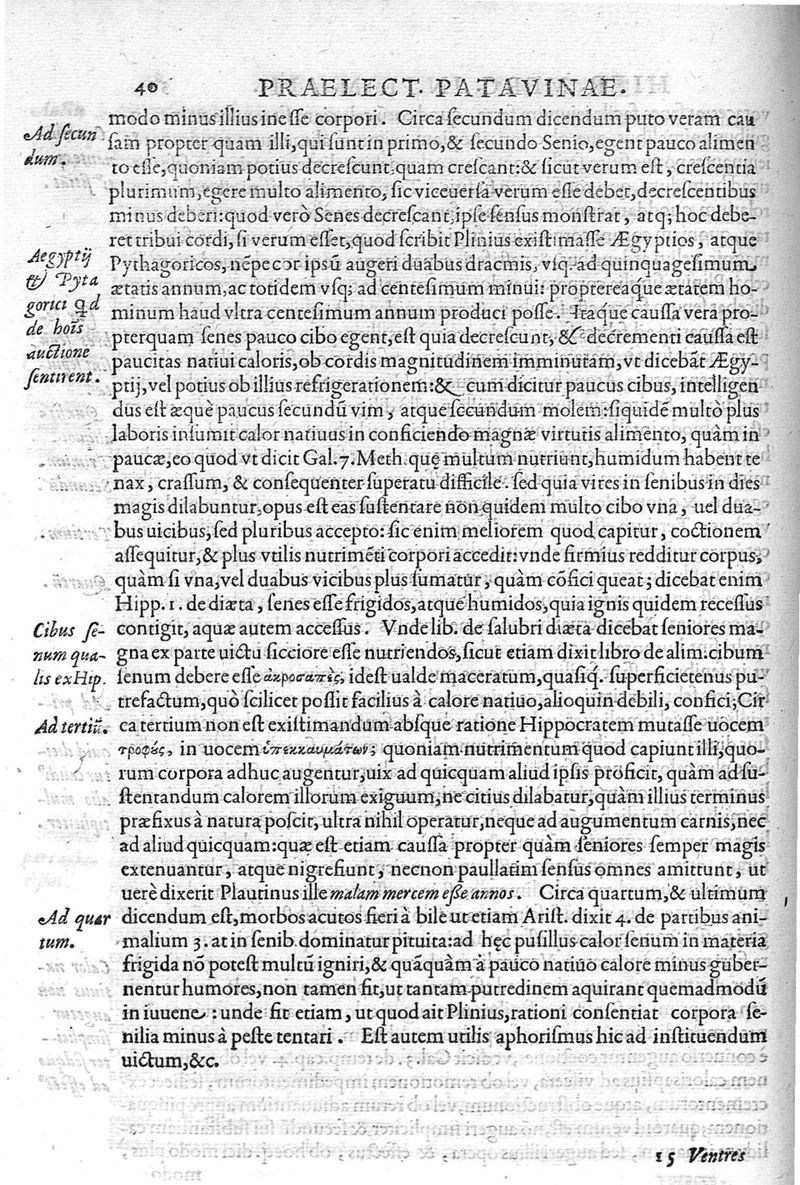 40 PRAELECT. PATAVINAE.
modo minus illius inesse corpori. Circa secundum dicendum puto veram cau
Ad secun
dum.
sam propter quam illi, qui sunt in primo, & secundo Senio, egent pauco alimen
to esse, quoniam potius decrescunt, quam crescant: & sicut verum est, crescentia
plurimum, egere multo alimento, sic viceuersa verum esse debet, decrescentibus
minus deberi: quod verò Senes decrescant, ipse sensus monstrat, atq; hoc debe-
ret tribui cordi, si verum esset, quod scribit Plinius existimasse Ægyptios, atque
Aegyptij
& Pyta
gorici qd
de hoĩs
auctione
sentirent.
Pythagoricos, nẽpe cor ipsũ augeri duabus dracmis, vsq; ad quinquagesimum
ætatis annum, ac totidem vsq; ad centesimum minui: proptereaque ætatem ho-
minum haud vltra centesimum annum produci posse. Itaque caussa vera pro-
pterquam senes pauco cibo egent, est quia decrescunt, & decrementi caussa est
paucitas natiui caloris, ob cordis magnitudinem imminutam, vt dicebãt Ægy-
ptij, vel potius ob illius refrigerationem: & cum dicitur paucus cibus, intelligen
dus est æquè paucus secundũ vim, atque secundum molem: siquidẽ multò plus
laboris insumit calor natiuus in conficiendo magnæ virtutis alimento, quàm in
paucæ, eo quod vt dicit Gal. 7. Meth. quę multum nutriunt, humidum habent te
nax, crassum, & consequenter superatu difficile. sed quia vires in senibus in dies
magis dilabuntur, opus est eas sustentare non quidem multo cibo vna, uel dua-
bus uicibus, sed pluribus accepto: sic enim meliorem quod capitur, coctionem
assequitur, & plus vtilis nutrimẽti corpori accedit: vnde firmius redditur corpus,
quàm si vna, vel duabus vicibus plus sumatur, quàm cõfici queat; dicebat enim
Hipp. 1. de diæta, senes esse frigidos, atque humidos, quia ignis quidem recessus
Cibus se-
num qua-
lis ex Hip.
contigit, aquæ autem accessus. Vnde lib. de salubri diæta dicebat seniores ma-
gna ex parte uictu sicciore esse nutriendos, sicut etiam dixit libro de alim. cibum
senum debere esse ἀκροσαπὲς, idest ualde maceratum, quasiq. superficietenus pu-
trefactum, quò scilicet possit facilius à calore natiuo, alioquin debili, confici; Cir
Ad tertiũ.
ca tertium non est existimandum absque ratione Hippocratem mutasse uocem
τροφῆς, in uocem ὑπεκκαυμάτων; quoniam nutrimentum quod capiunt illi, quo-
rum corpora adhuc augentur, uix ad quicquam aliud ipsis proficit, quàm ad su-
stentandum calorem illorum exiguum, ne citius dilabatur, quàm illius terminus
præfixus à natura poscit, ultra nihil operatur, neque ad augumentum carnis, nec
ad aliud quicquam: quæ est etiam caussa propter quàm seniores semper magis
extenuantur, atque nigrefiunt, necnon paullatim sensus omnes amittunt, ut
uerè dixerit Plautinus ille malam mercem esse annos. Circa quartum, & ultimum
Ad quar
tum.
dicendum est, morbos acutos fieri à bile ut etiam Arist. dixit 4. de partibus ani-
malium 3. at in senib. dominatur pituita: ad hęc pusillus calor senum in materia
frigida nõ potest multũ igniri, & quãquàm à pauco natiuo calore minus guber-
nentur humores, non tamen fit, ut tantam putredinem aquirant quemadmodũ
in iuuene: unde fit etiam, ut quod ait Plinius, rationi consentiat corpora se-
nilia minus à peste tentari. Est autem utilis aphorismus hic ad instituendum
uictum, &c.
15 Ventres